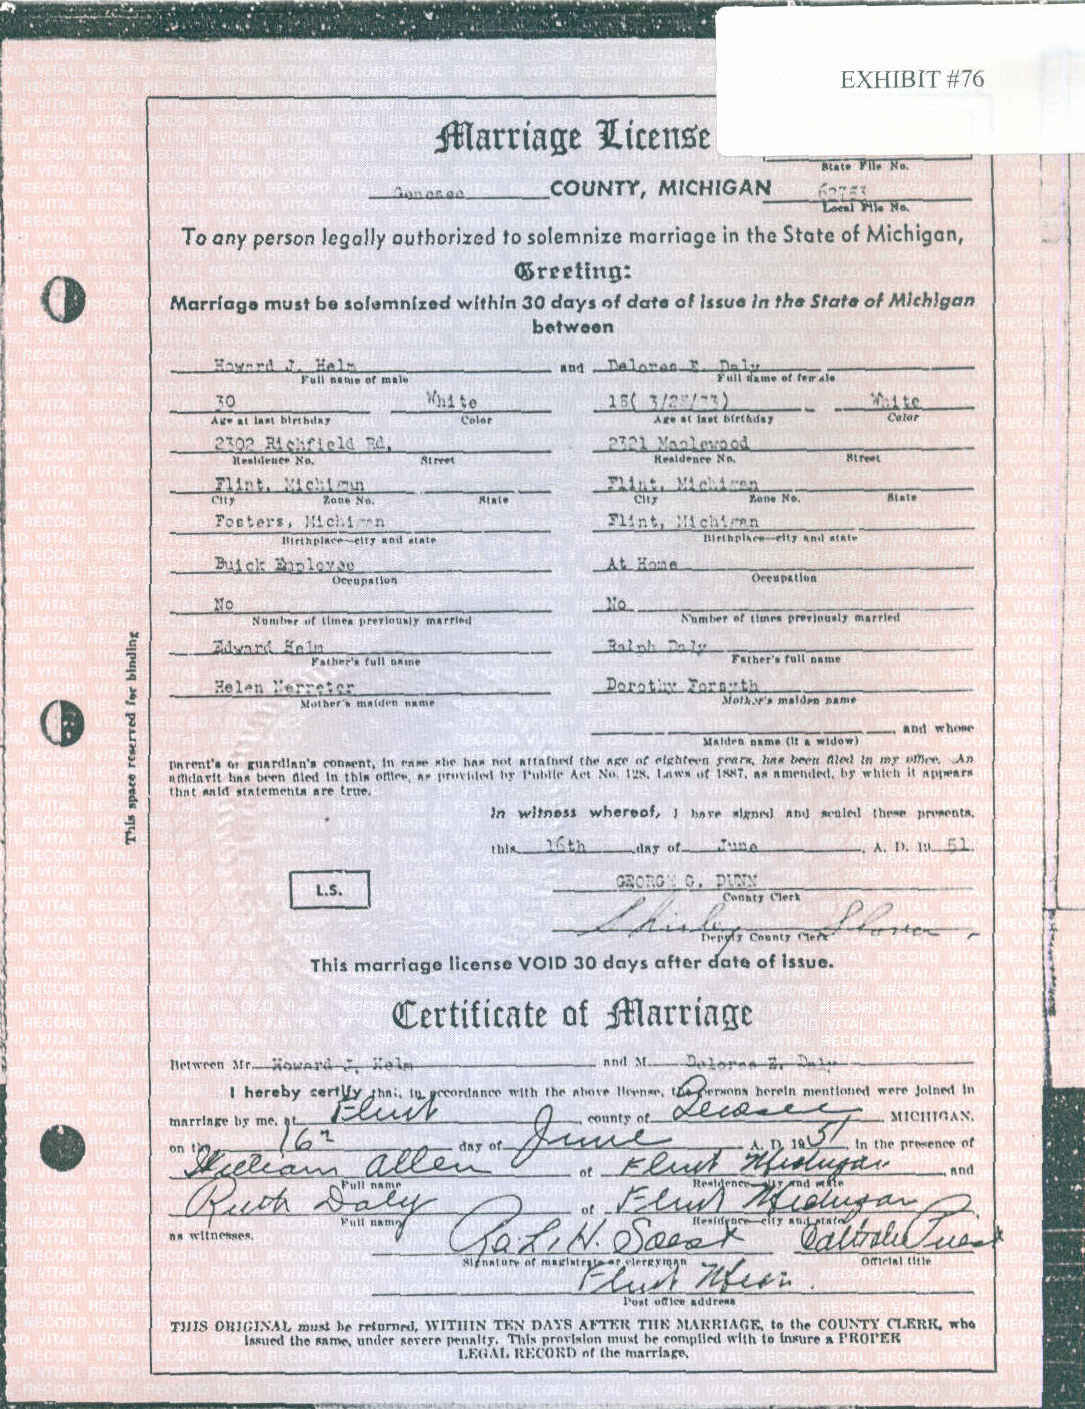 EXHIBIT #76
Marriage License
State File No.
Genesee COUNTY, MICHIGAN
Local File No.
To any person legally authorized to solemnize marriage in the State of Michigan,
Greeting:
Marriage must be solemnized within 30 days of date of issue in the State of Michigan
between
Howard J. Helm and Delores E. Daly
Full name of male Full name of female
30 White 18( 3/28/33) White
Age at last birthday Color Age at last birthday Color
2302 Richfield Rd. 2321 Maplewood
Residence No. Street Residence No. Street
Flint, Michigan Flint, Michigan
City Zone No. State City Zone No. State
Fosters, Michigan Flint, Michigan
Birthplace—city and state Birthplace—city and state
Buick Employee At Home
Occupation Occupation
No No
Number of times previously married Number of times previously married
Edward Helm Ralph Daly
Father's full name Father's full name
Helen Nerreter Dorothy Forsyth
Mother's maiden name Mother's maiden name
and whose
Maiden name (if a widow)
parent's or guardian's consent, in case she has not attained the age of eighteen years, has been filed in my office. An
affidavit has been filed in this office, as provided by Public Act No. 128, Laws of 1887, as amended, by which it appears
that said statements are true.
In witness whereof, I have signed and sealed these presents,
this 16th day of June, A. D. 19 51.
GEORGE G. DUNN
County Clerk
L.S.
Shirley
Deputy County Clerk
This marriage license VOID 30 days after date of issue.
Certificate of Marriage
Between Mr. Howard J. Helm and M. Delores E. Daly
I hereby certify that, in accordance with the above license, the persons herein mentioned were joined in
marriage by me, at Flint county of Genesee, MICHIGAN,
on the 16 day of June A. D. 19 51, in the presence of
William Allen of Flint Michigan, and
Full name Residence—city and state
Ruth Daly of Flint Michigan,
Full name Residence—city and state
as witnesses.
Catholic Priest
Signature of magistrate or clergyman Official title
Flint Mich.
Post office address
THIS ORIGINAL must be returned, WITHIN TEN DAYS AFTER THE MARRIAGE, to the COUNTY CLERK, who
issued the same, under severe penalty. This provision must be complied with to insure a PROPER
LEGAL RECORD of the marriage.
This space reserved for binding